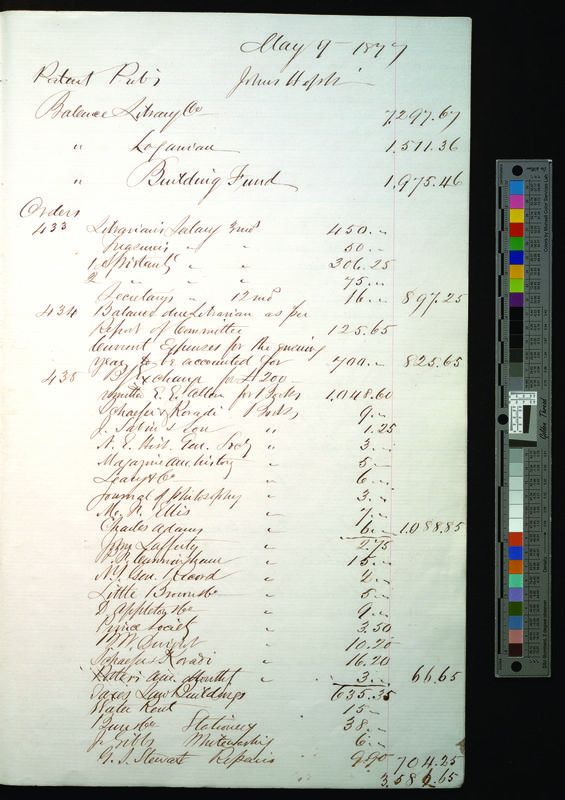 May 9 - 1877
Patent Pub's Johns Hopki
Balance Library Co 7,297.67
" Loganian 1,511.36
" Building Fund 1,975.46
Orders
433 Librarian's Salary 3 mos 450.--
Treasurer's " " 50.--
1 Assistants " " 306.25
2 " " " 75.--
Secretarys " 12 mos 16.-- 897.25
434 Balance due Librarian as per
Report of Committee 125.65
Current Expenses for the ensuing
year to be accounted for 700.-- 825.65
435 B/ Exchange for £200--
remitte E. G. Allen for Books 1,048.60
Schaefer & Koradi Books, 9.--
J. Sabin & Son " 1.25
N. E. Hist. Gen. Socy " 3.--
Magazine Am. history " 5--
Leary & Co " 6.--
Journal of Philosophy " 3.--
Mr. Ellis " 7.--
Charles Adams " 6.-- 1,088.85
Lafferty " 2.75
Cunningham " 15.--
N.Y. Gen. Record " 2.--
Little Brown & Co " 5.--
D. Appleton & Co " 9.--
Prince Society " 3.50
" 10.20
Schaefer & Koradi " 16.20
Potter's Am. Monthly " 3.-- 66.65
Taxes Law Buildings 635.35
Water Rent 15--
Stationery 38.--
J. Gibbs 6.--
Stewart Repairs 9.90 704.25
3,582.65